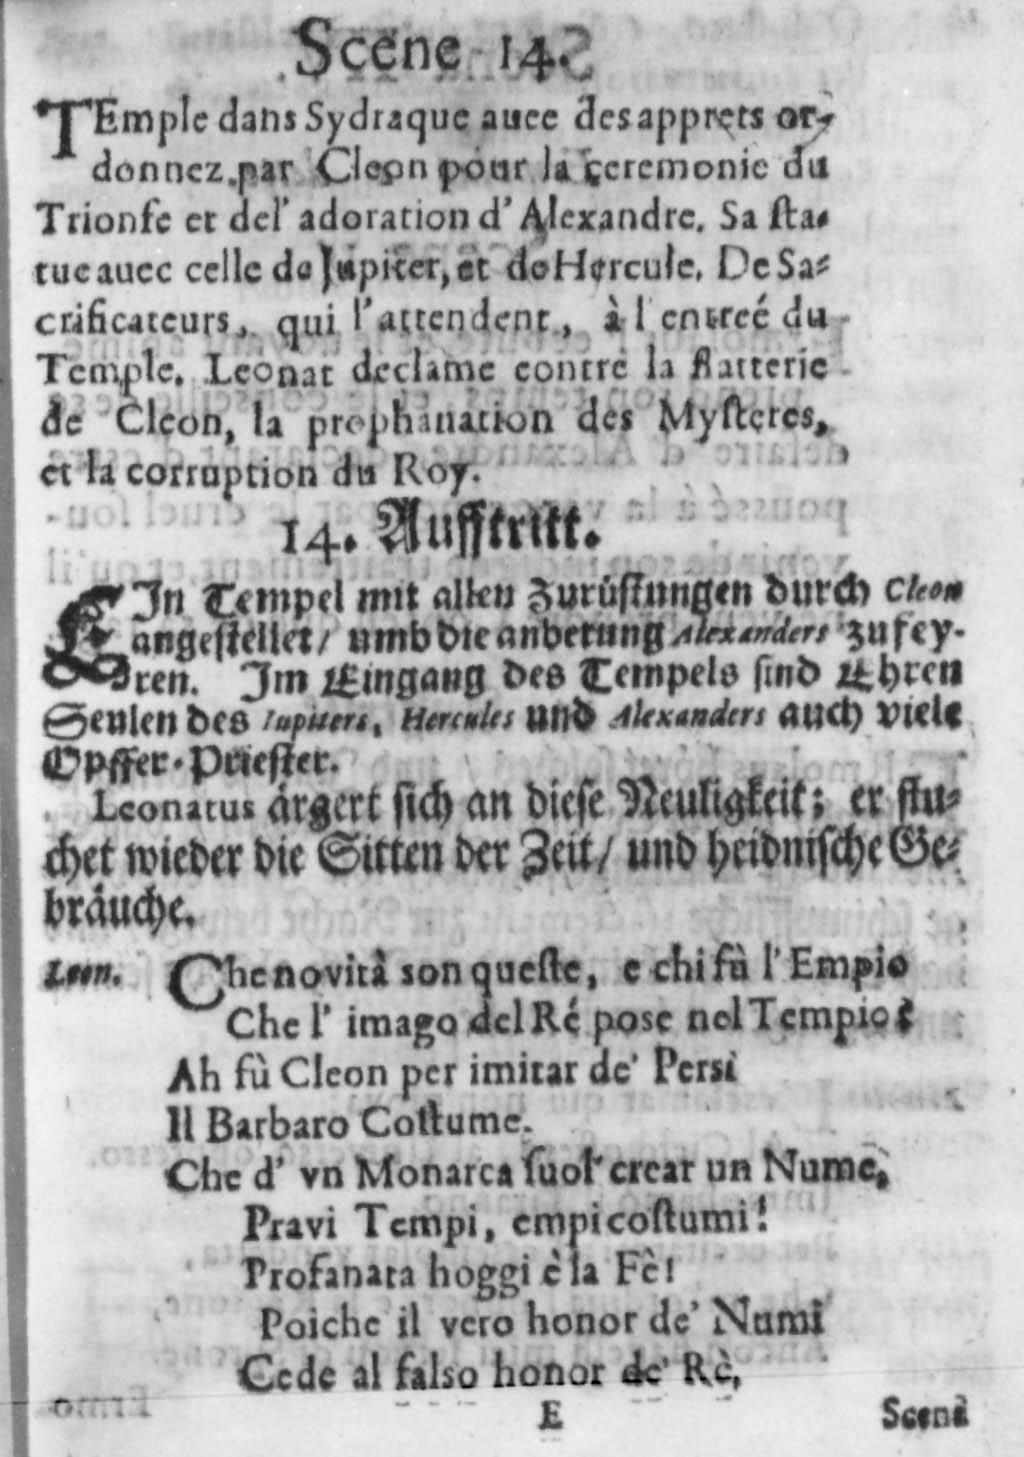 Scene 14.
TEmple dans Sydraque auec des apprets or-
donnez par Cleon pour la ceremonie du
Trionfe et del' adoration d' Alexandre. Sa sta-
tue auec celle de Jupiter, et de Hercule. De Sa-
crificateurs, qui l'attendent, à l entreé du
Temple. Leonat declame contre la flatterie
de Cleon, la prophanation des Mysteres,
et la corruption du Roy.
14. Aufftritt.
EIn Tempel mit allen Zurüstungen durch Cleon
angestellet/ umb die anbetung Alexanders zu fey-
ren. Im Eingang des Tempels sind Ehren
Seulen des Iupiters, Hercules und Alexanders auch viele
Opffer-Priester.
Leonatus ärgert sich an diese Neuligkeit; er flu-
chet wieder die Sitten der Zeit/ und heidnische Ge-
bräuche.
Leon. Che novità son queste, e chi fù l' Empio
Che l' imago del Ré pose nel Tempio?
Ah fù Cleon per imitar de' Persi
Il Barbaro Costume.
Che d' vn Monarca suol' crear un Nume,
Pravi Tempi, empi costumi!
Profanata hoggi è la Fè!
Poiche il vero honor de' Numi
Cede al falso honor de' Rè,
E
Scena